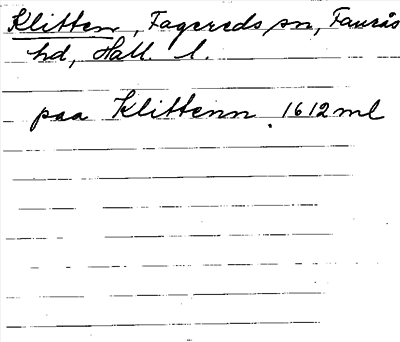 Klitten, Fagereds sn, Faurås
hd, Hall. l.
paa Klittenn. 1612 ml